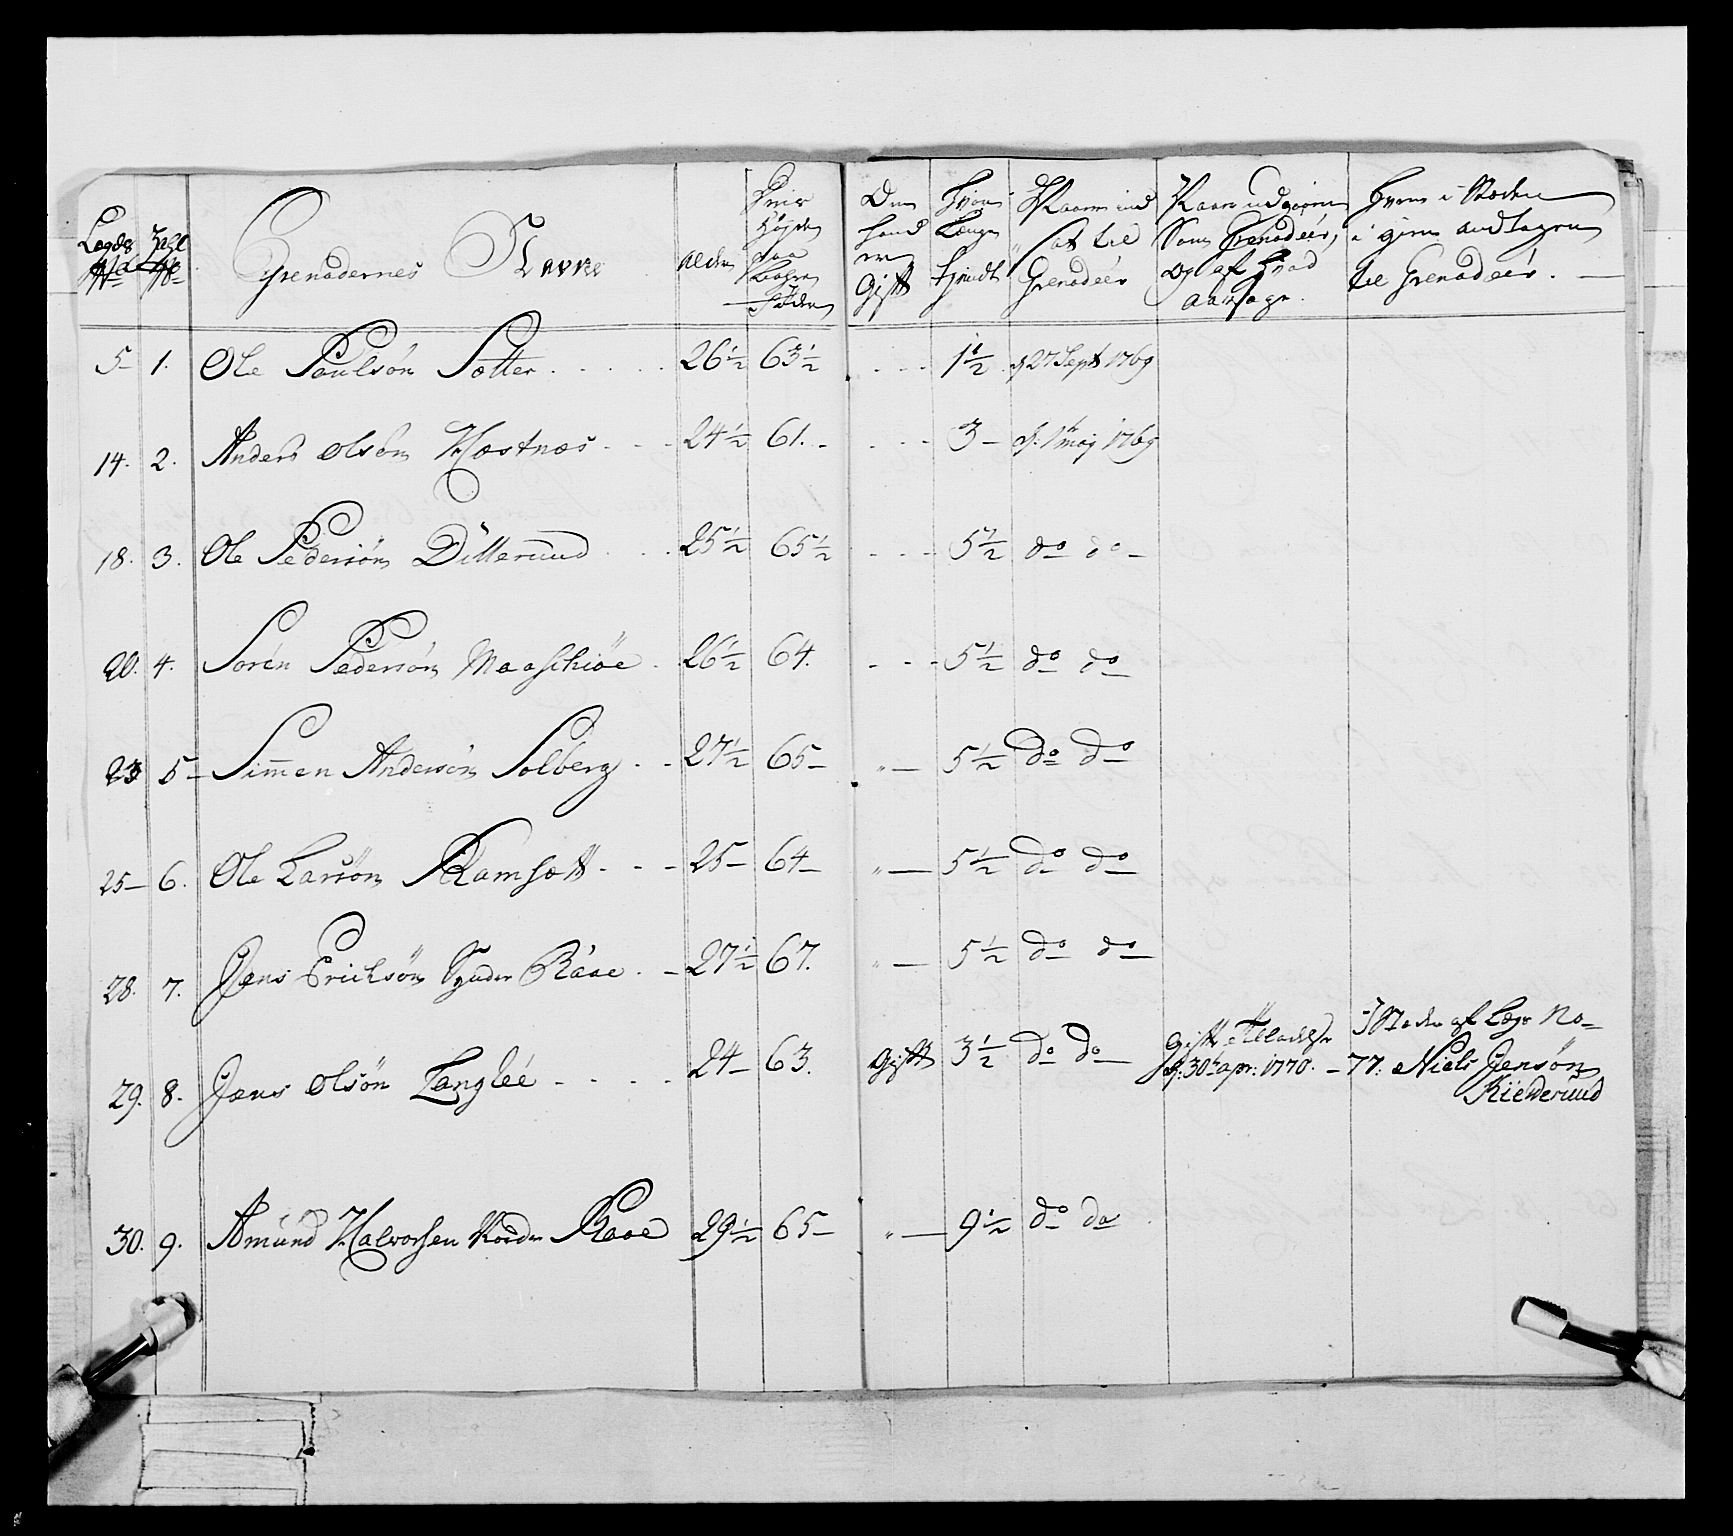 Legds No Tahl No Grenadernes Navne Alder Deris Høyde paa Strømper Tommer Om hand er Gift Hvor Længe Tjendt Naar ind sat til Grenadeer Naar udgaaen Som Grenadeer, Og af hvad aarsage. Hvem i Steden i gien andtagen til Grenadeer.
5 1. Ole Poulsön Sætter 26½ 63½ 1½ d 27 Sept 1769
14. 2. Anders Olsön Hæstnæs 24½ 61. 3 d. 1te maj 1769
18. 3. Ole Pedersön Ditterund 25½ 65½ 5½ do do
20. 4. Soren Pedersön Maaschiöe 26½ 64. 5½ do do
23 5 Simmen Andersön Solberg 27½ 65 " 5½ do do
25 6. Ole Larsön Ramsætt 25 64 " 5½ do do
28. 7. Jens Erichsön Synder Raae 27½ 67. " 5½ do do
29. 8. Jens Olsön Langleé 24 63. Gift 3½ do do Gift
d: 30te apr: 1770. I Steden af Lægs No
77: Niels Jensön
Kielderund
30. 9. Amund Halvorsen Nordr Raae 29½ 65 " 9½ do do